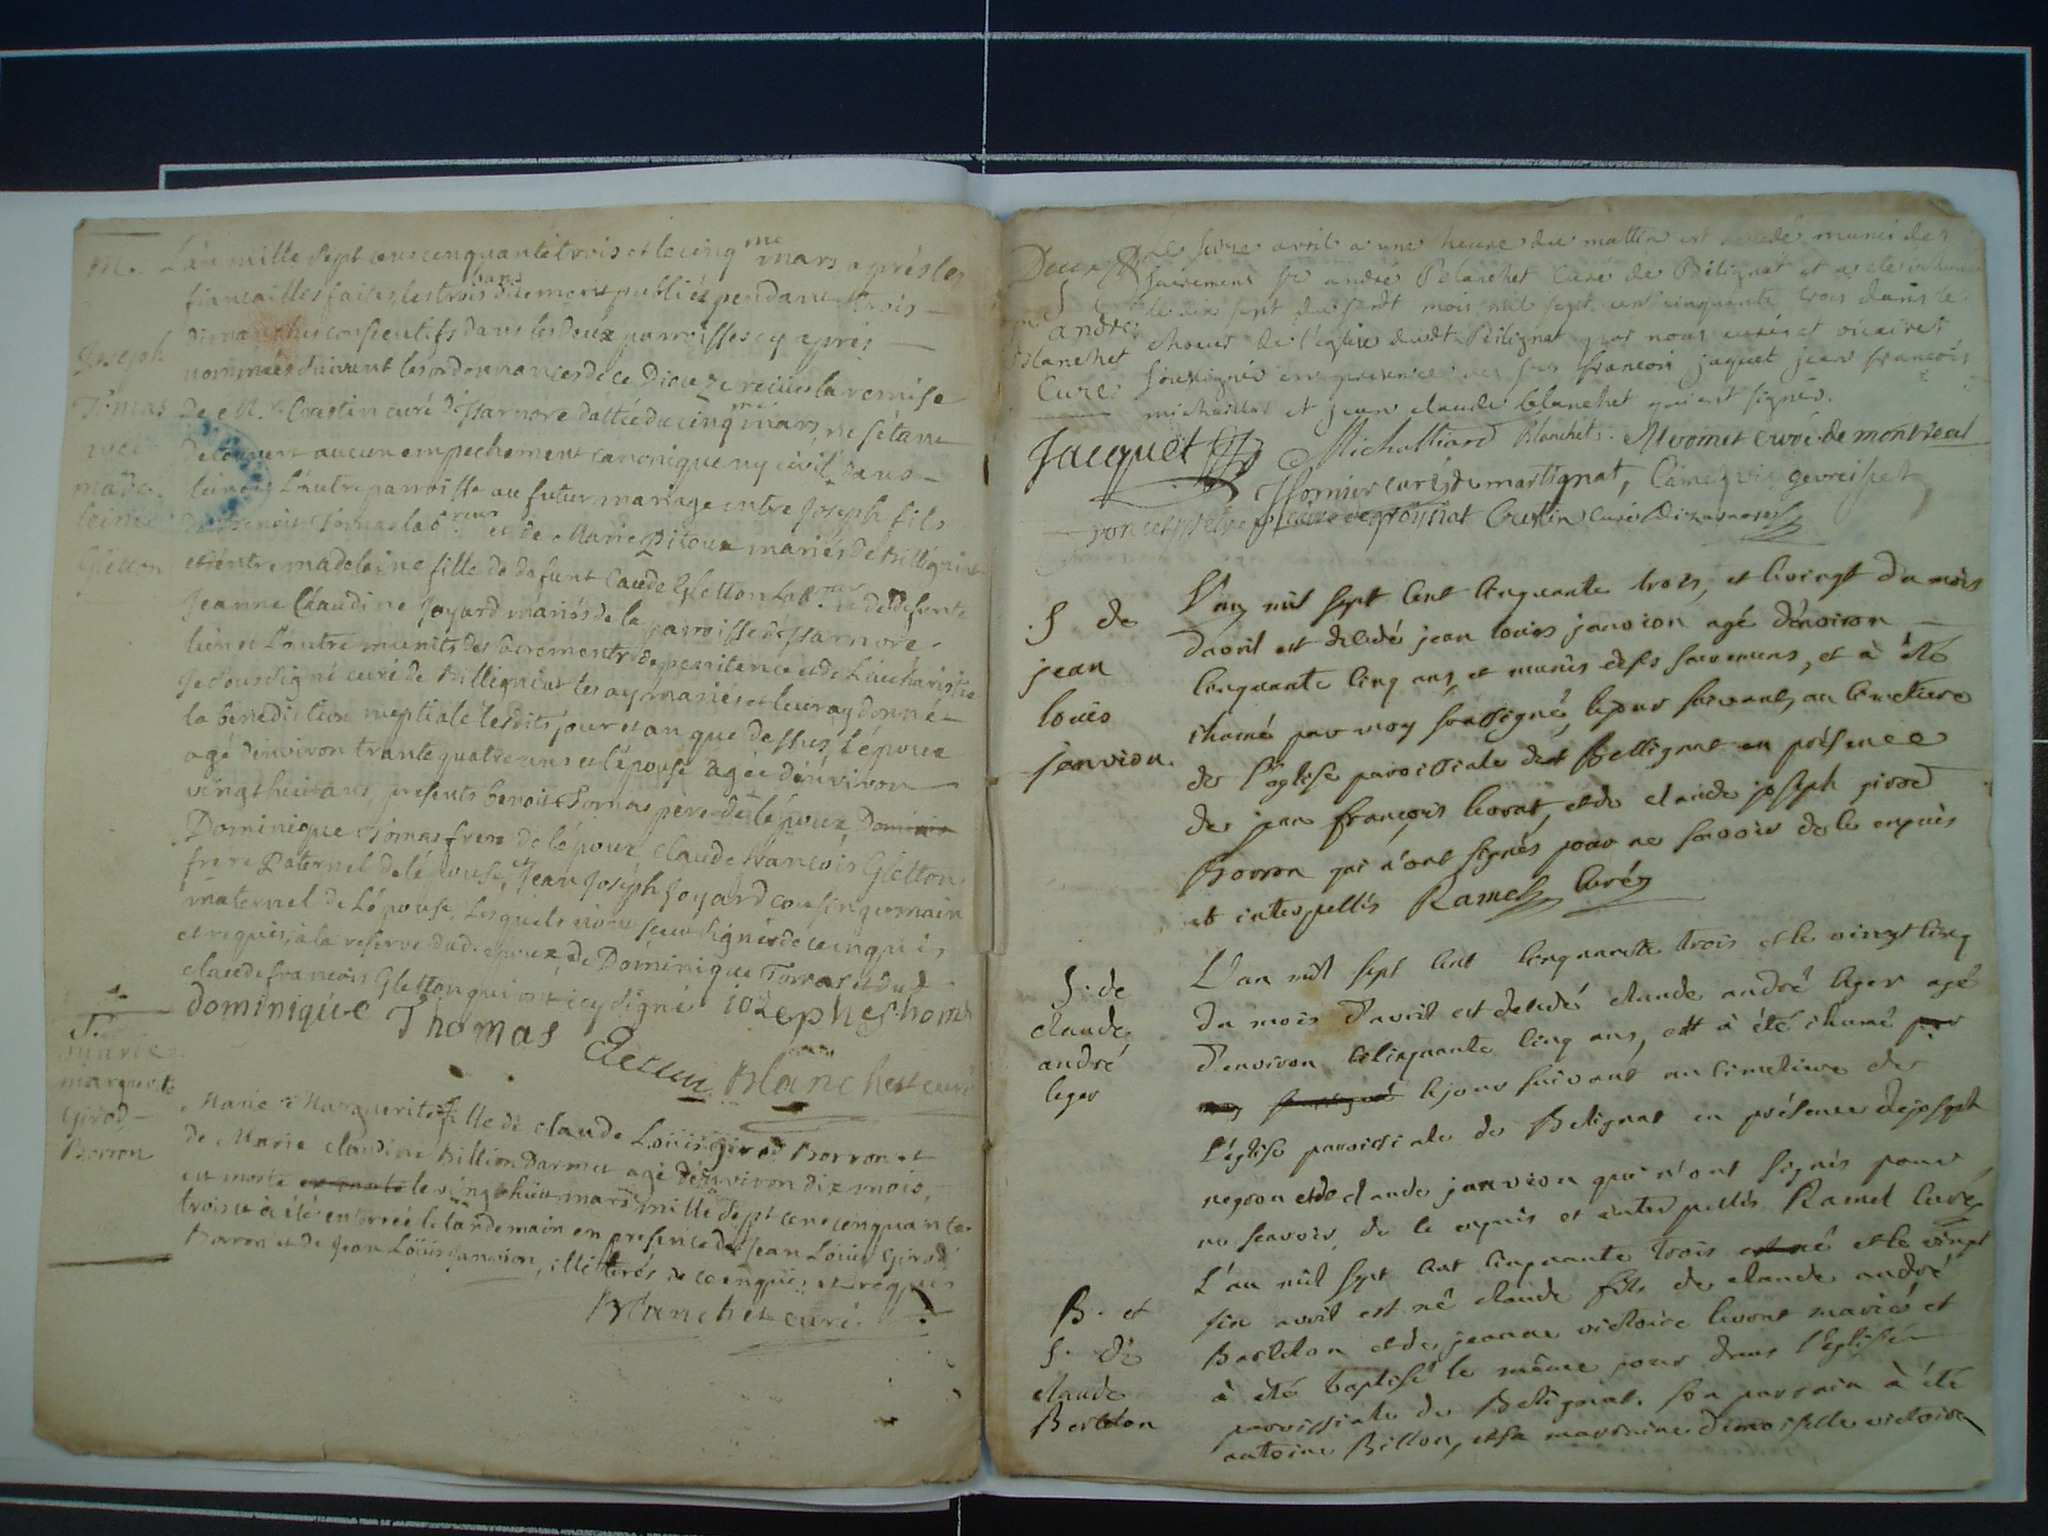 M. L'an mille sept cens cenquante trois et le cinq me mars après les
fiancailles faites les trois bans duement publiés pendant trois
dimanches consecutifs dans les deux parroisses cy après
Joseph
nommées suivant les ordonnances de ce Dioceze reçüe la remise
Tomas
de Mr Coustin curé d'Isarnore dattée du cinq me mars, ne s'étant
decouvert aucun empechement canonique ny civil dans
made
l'une et L'autre parroisse au futur mariage entre Joseph fils
leine
de Benoit Tomas lab. reur et de Marie Pitoux mariés de Billignat
Gletton
et entre madeleine fille de defunt Claude Gletton Lab. reur et de defunte
Jeanne Claudine Joyard mariés de la parroisse d'Isarnore
l'un et L'autre munits des sacrements de penitence et de L'eucharistie
Je soussigné curé de Billigniat les ay mariés et leur ay donné
la benediction nuptiale lesdits jour et an que dessus, l'époux
agé d'environ trante quatre ans et l'épouse agée d'environ
vingt huit ans, presents benoit Tomas père de l'époux, Dominiq
Dominique Tomas frere de l'époux, claude francois Gletton
frere Paternel de l'épouse, et Jean Joseph Joyard cousin germain
maternel de L'épouse, lesquels n'ont sceu signer de ce enquis
et requis, à la reserve dudt epoux, de Dominique Tomas et dud.
claude francois Gletton qui ont icy signé
dominique Thomas iozeph thomas
Gletton Blanchet curé
S.
marie
marguerite
Girod
Borron
Marie Marguerite fille de claude Loüis girod Borron et
de Marie claudine Billion Darmet agé d'environ dix mois,
est morte et morte le vingt huit mars mille sept cent cenquante
trois et à été enterrée le landemain en presence de Jean Loüis Girod
Borron et de Jean Loüis Janvion, illitterés de ce enquis et requis
Blanchet curé
Le seize avril a une heure du mattin est decedé munis des
sacremens Sr andré Blanchet Curé de Bélignat et a eté inhumé
le dix sept dudt mois mil sept cent cinquante trois dans le
andré
choeur de l'église dudt Bélignat par nous curés et vicaires
Blanchet
soussignés en presence des srs francois jaquet jean francois
Curé
michaillard et jean claude blanchet qui ont signés.
Jacquet Michalliard Blanchet curé de montreal
curé de martignat,
S de
jean
louis
janvion.
L'an mil sept cent cinquante trois, et le vingt du mois
d'avril est decedé jean louis janvion agé d'environ
cinquante cinq ans, et munis de ses sacremens, et à été
ihumé par moy soussigné, le jour suivant, au cimetiere
de l'église paroissiale de Bellignat en présence
de jean françois livrat, et de claude joseph girod
Borron qui n'ont signés pour ne savoir de le enquis
et interpellés Ramel Curé
S. de
claude
andré
leger
L'an mil sept cent cinquante trois et le vingt cinq
du mois d'avril est decedé claude andré leger agé
d'environ cinquante cinq ans, et à été ihumé par
moy soussigné le jour suivant au cimetiere de
l'église paroissiale de Belignat en présence de joseph
negron et de claude janvion qui n'ont signés pour
ne scavoir, de le enquis et interpellés Ramel Curé
B. et
S. de
claude
Berthon
L'an mil sept cent cinquante trois est né et le vingt
six avril est né claude fils de claude andré
Berthon et de jeanne victoire livrat mariés et
à été baptisé le même jour dans l'église
paroissiale de Belignat. son parrain à été
antoine Billon, et sa marraine demoiselle victoire